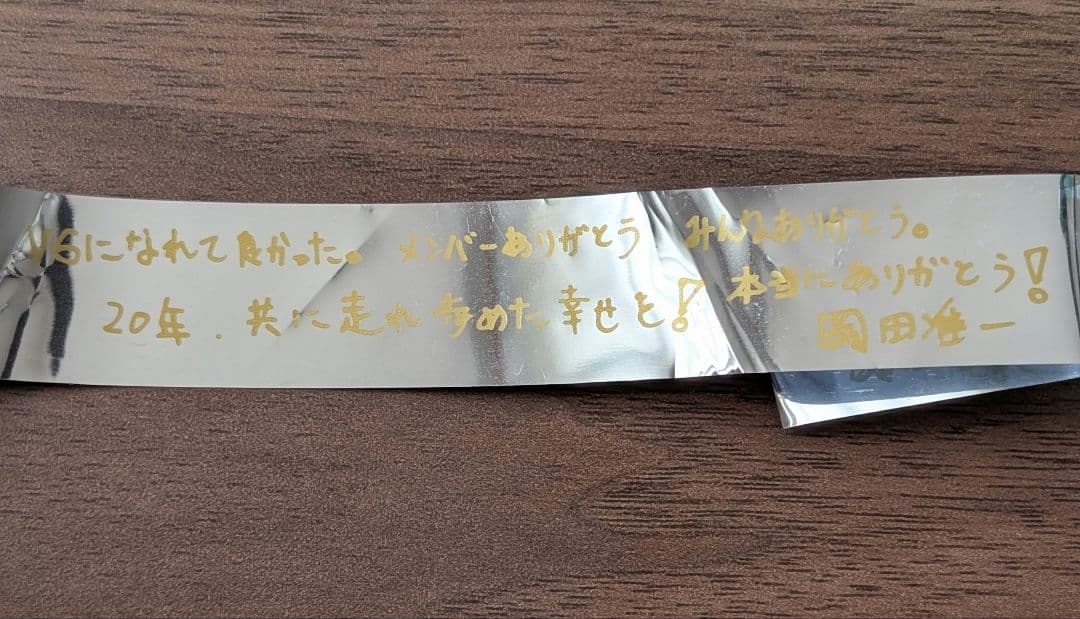 V6になれて良かった。メンバーありがとう みんなありがとう。
20年.共に走れ歩めた幸せを! 本当にありがとう!
岡田准一